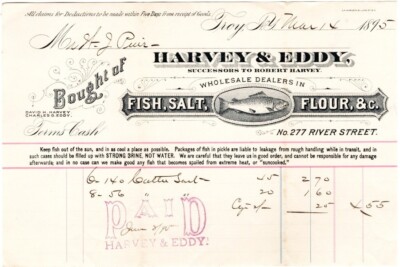 All claims for Deductions to be made within Five Days from receipt of Goods.
Troy, N.Y. Mar 14 1895
M H J
Bought of HARVEY & EDDY,
SUCCESSORS TO ROBERT HARVEY.
WHOLESALE DEALERS IN
FISH, SALT, FLOUR, &c.
DAVID R. HARVEY
CHARLES G. EDDY.
Terms Cash
No. 277 RIVER STREET.
Keep fish out of the sun, and in as cool a place as possible. Packages of fish in pickle are liable to leakage from rough handling while in transit, and in
such cases should be filled up with STRONG BRINE, NOT WATER. We are careful that they leave us in good order, and cannot be responsible for any damage
afterwards; and in no case can we make good any fish that becomes spoiled from extreme heat, or "sunsoaked."
6-140 Salt 45 2 70
8-56 " " 20 1 60
25 4 55
PAID
HARVEY & EDDY.